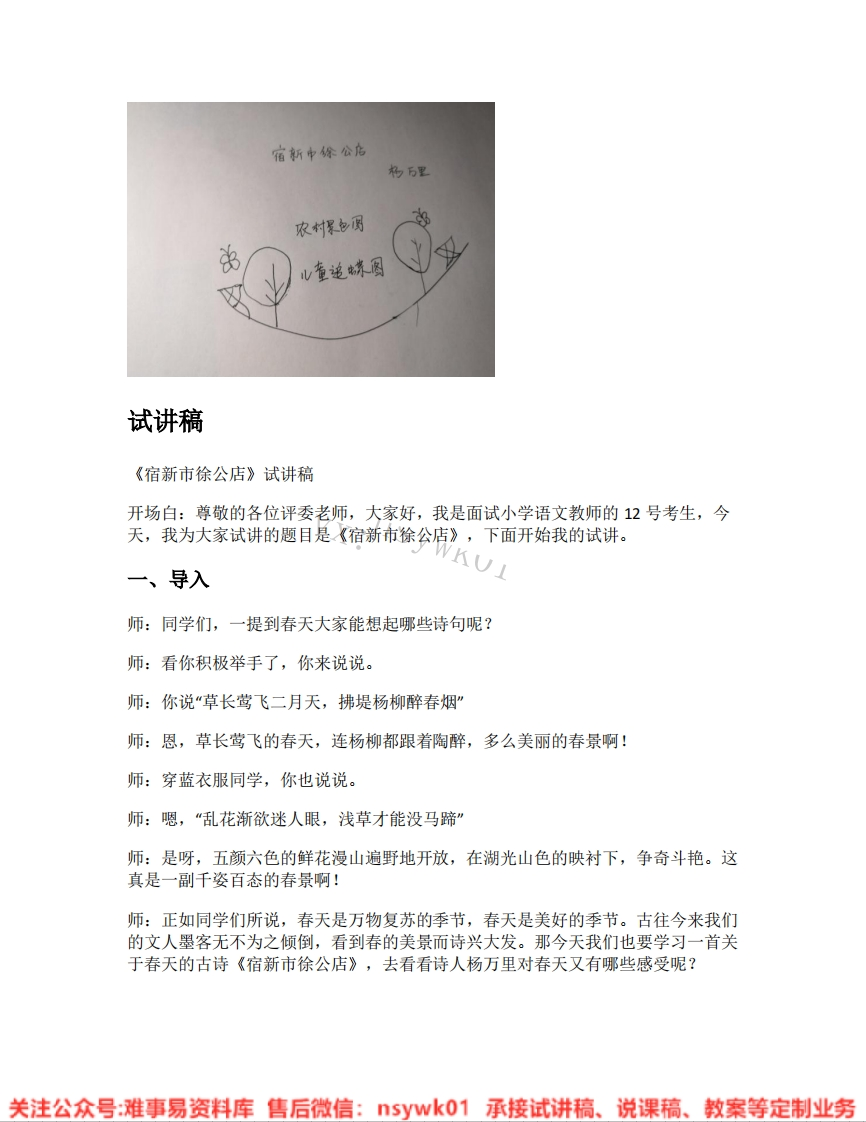 宿新市徐公店
杨万里
农村景色图
儿童追蝶图
试讲稿
《宿新市徐公店》试讲稿
开场白：尊敬的各位评委老师，大家好，我是面试小学语文教师的 12 号考生，今
天，我为大家试讲的题目是《宿新市徐公店》，下面开始我的试讲。
一、导入
师：同学们，一提到春天大家能想起哪些诗句呢？
师：看你积极举手了，你来说说。
师：你说“草长莺飞二月天，拂堤杨柳醉春烟”
师：恩，草长莺飞的春天，连杨柳都跟着陶醉，多么美丽的春景啊！
师：穿蓝衣服同学，你也说说。
师：嗯，“乱花渐欲迷人眼，浅草才能没马蹄”
师：是呀，五颜六色的鲜花漫山遍野地开放，在湖光山色的映衬下，争奇斗艳。这
真是一副千姿百态的春景啊！
师：正如同学们所说，春天是万物复苏的季节，春天是美好的季节。古往今来我们
的文人墨客无不为之倾倒，看到春的美景而诗兴大发。那今天我们也要学习一首关
于春天的古诗《宿新市徐公店》，去看看诗人杨万里对春天又有哪些感受呢？
关注公众号:难事易资料库 售后微信：nsywk01 承接试讲稿、说课稿、教案等定制业务